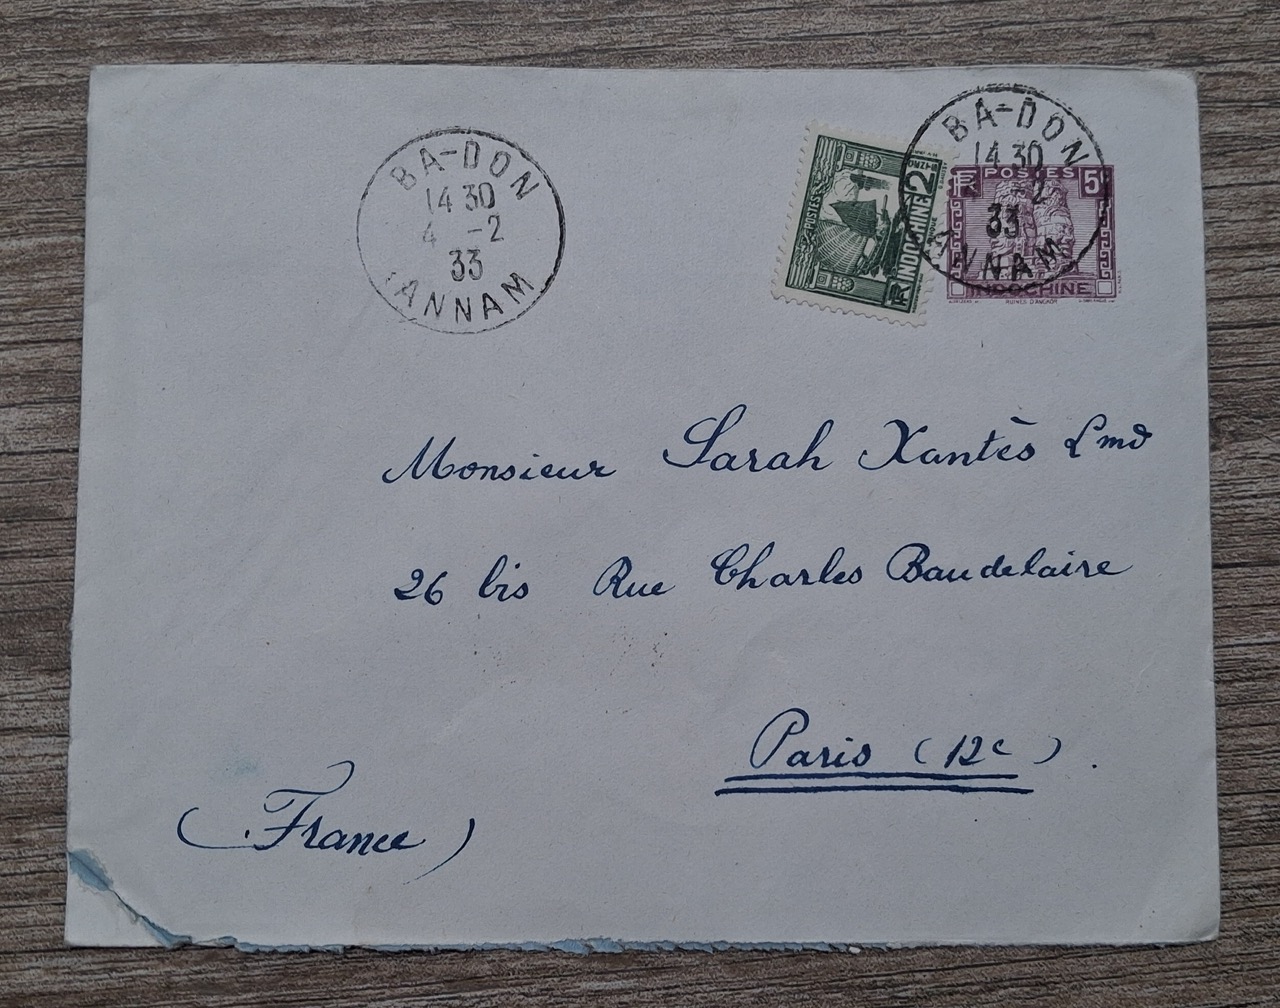 BA-DON
14 30
4 -2
33
ANNAM
POSTES
INDOCHINE
RF
2
BA-DON
14 30
-2
33
ANNAM
RF POSTES 5c
INDOCHINE
RUINES D'ANGKOR
Monsieur Sarah Xantès Lmd
26 bis Rue Charles Baudelaire
Paris (12e).
(France)